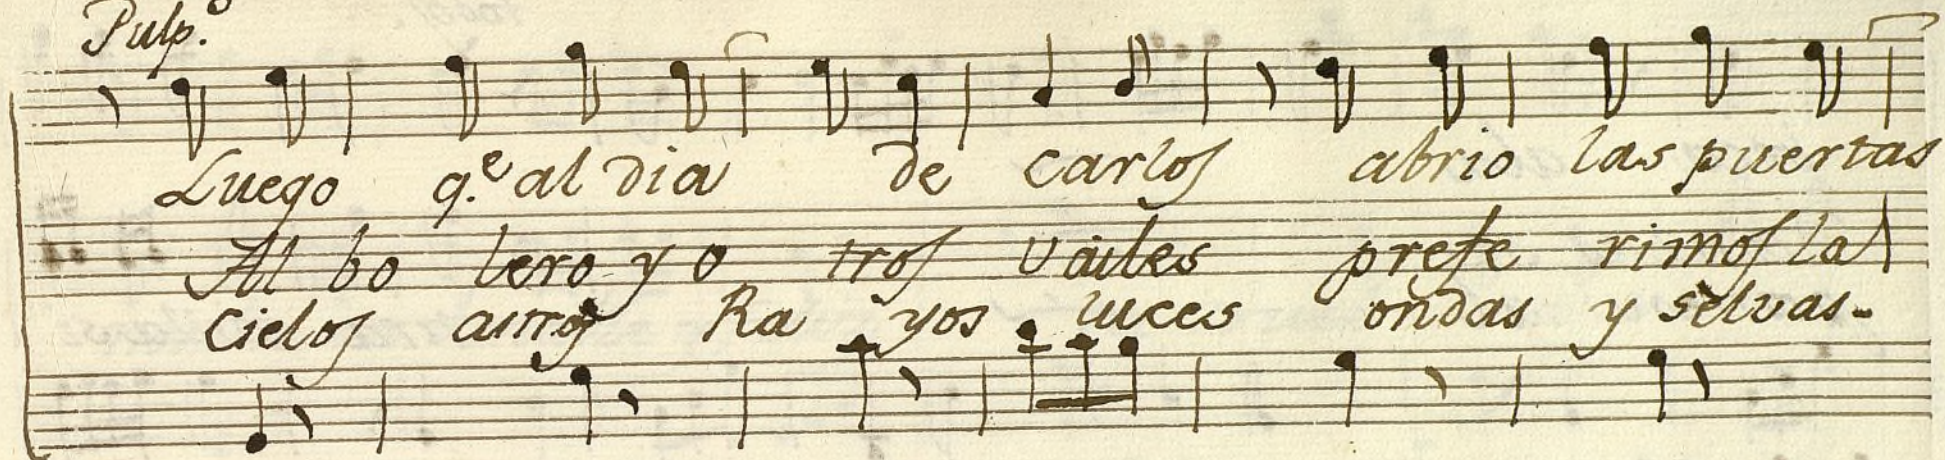 Pulp.º
Luego q.e al dia de Carlos abrio las puertas
Al bo lero y o tros vailes prefe rimos la
Cielos astros Ra yos luces ondas y selvas-